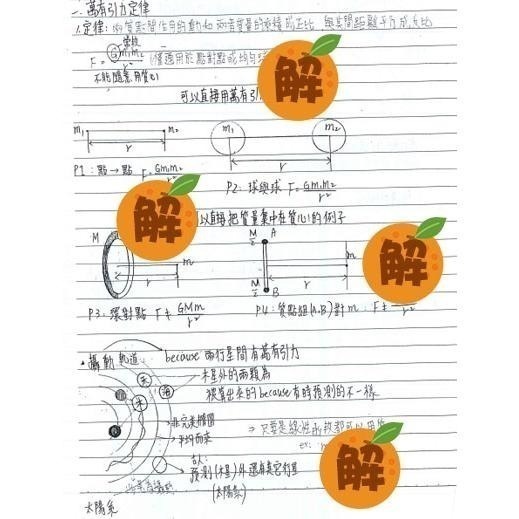 一、萬有引力定律
1.定律：兩質點間作用的動力和兩者質量的乘積成正比，與其間距離平方成反比
常數
F = Gm₁m₂/r²
(僅適用於點對點或均勻
不能隨意用質心
可以直接用萬有引
解
m₁ m₂
r
m₁ m₂
r
P1：點→點 F=Gm₁m₂/r²
P2：球與球 F=Gm₁m₂/r²
解
以直接把質量集中在質心的例子
解
M m
r
M/2 A
m
r
M/2 B
P3：環對點 F≠GMm/r²
P4：質點組(A,B)對m F≠ /r²
攝動軌道： because 兩行星間有萬有引力
木星外的兩顆為
被算出來的because有時預測的不一樣
天
海
木
非完美橢圓
⇒只要是線性函數都可以用
平均而來
ex:
古人：
預測(木)外還有其它行星
(太陽系)
太陽系
解